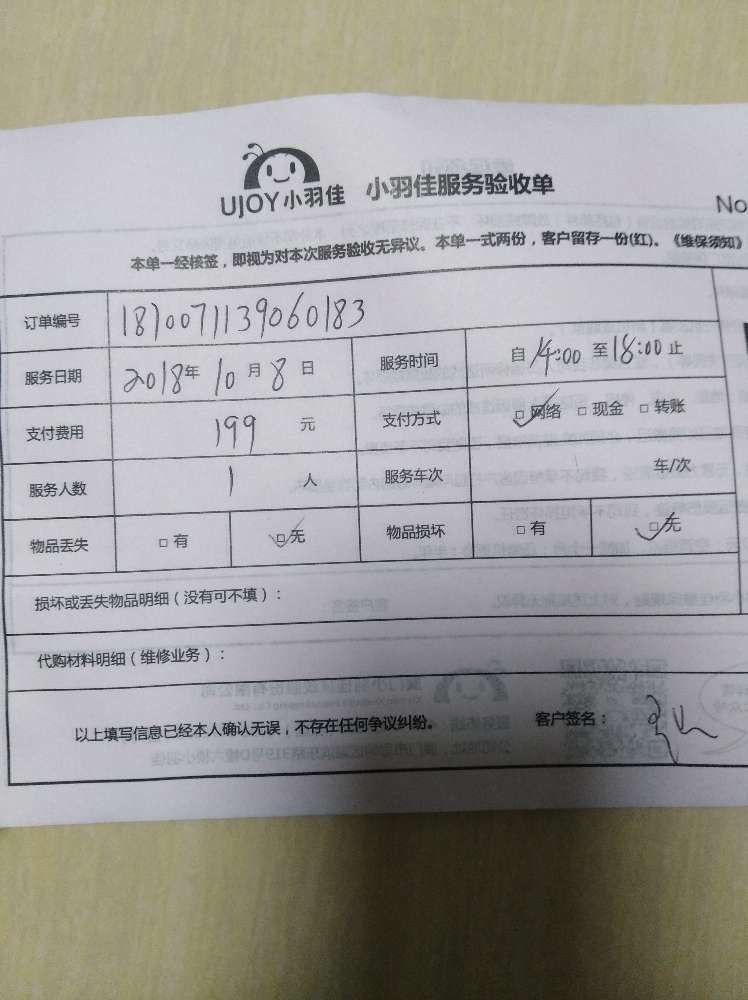 UJOY小羽佳 小羽佳服务验收单
No
本单一经核签，即视为对本次服务验收无异议。本单一式两份，客户留存一份(红)。《维保须知》
订单编号 1810071139060183
服务日期 2018年 10月 8日 服务时间 自 14:00 至 18:00 止
支付费用 199 元 支付方式 □网络 □现金 □转账
服务人数 1 人 服务车次 车/次
物品丢失 □有 □无 物品损坏 □有 □无
损坏或丢失物品明细（没有可不填）：
代购材料明细（维修业务）：
以上填写信息已经本人确认无误，不存在任何争议纠纷。 客户签名：